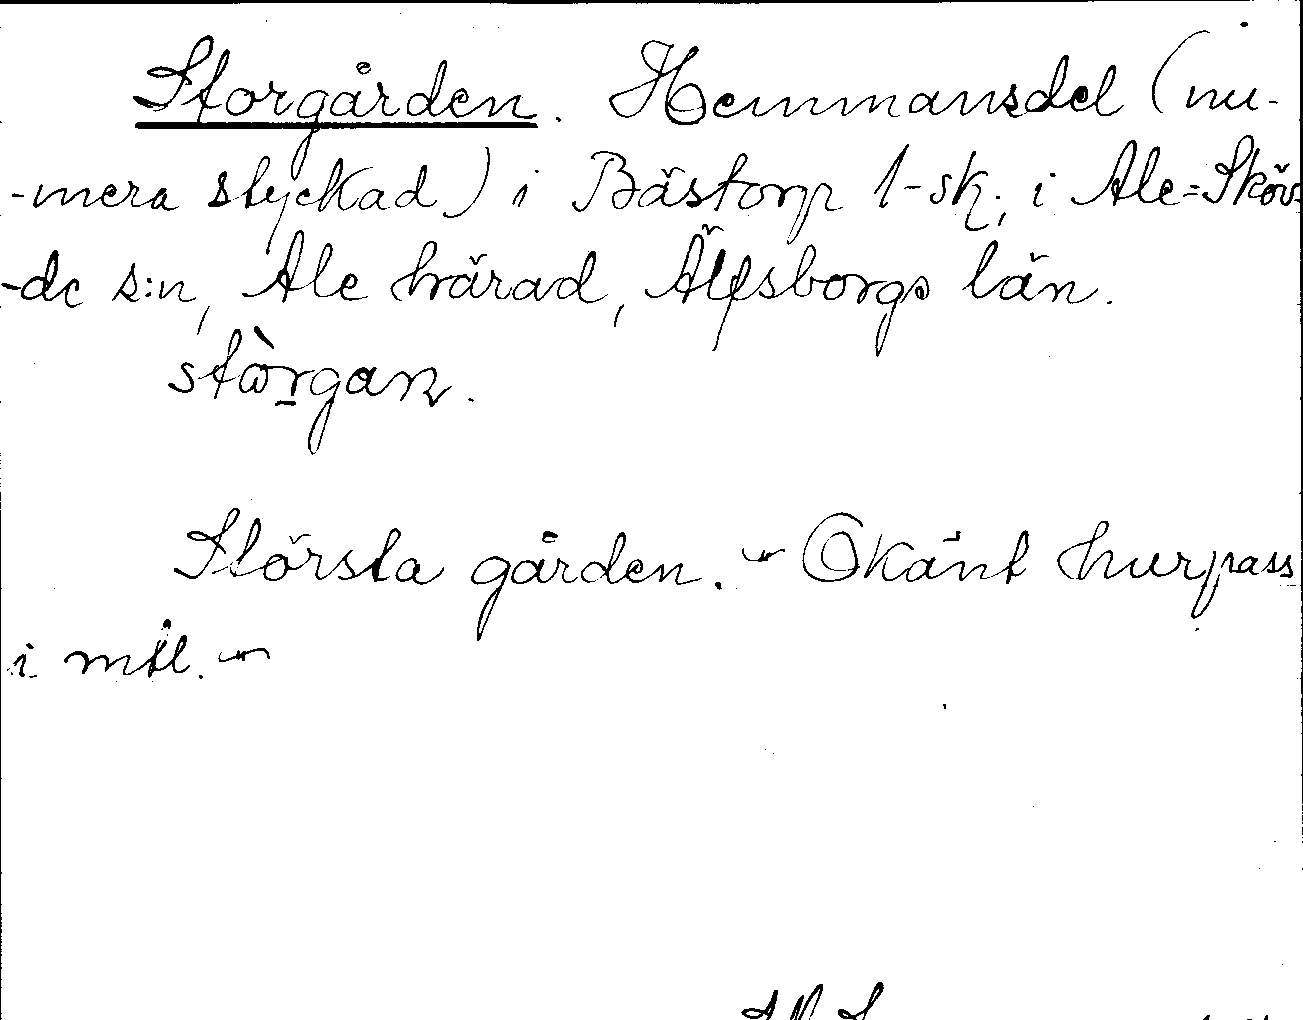 Storgården. Hemmansdel (nu-
-mera styckad) i Bästorp 1-sk., i Ale-Sköv-
-de s:n, Ale härad, Älfsborgs län.
Största gården. - Okänt hurpass
i mtl. -